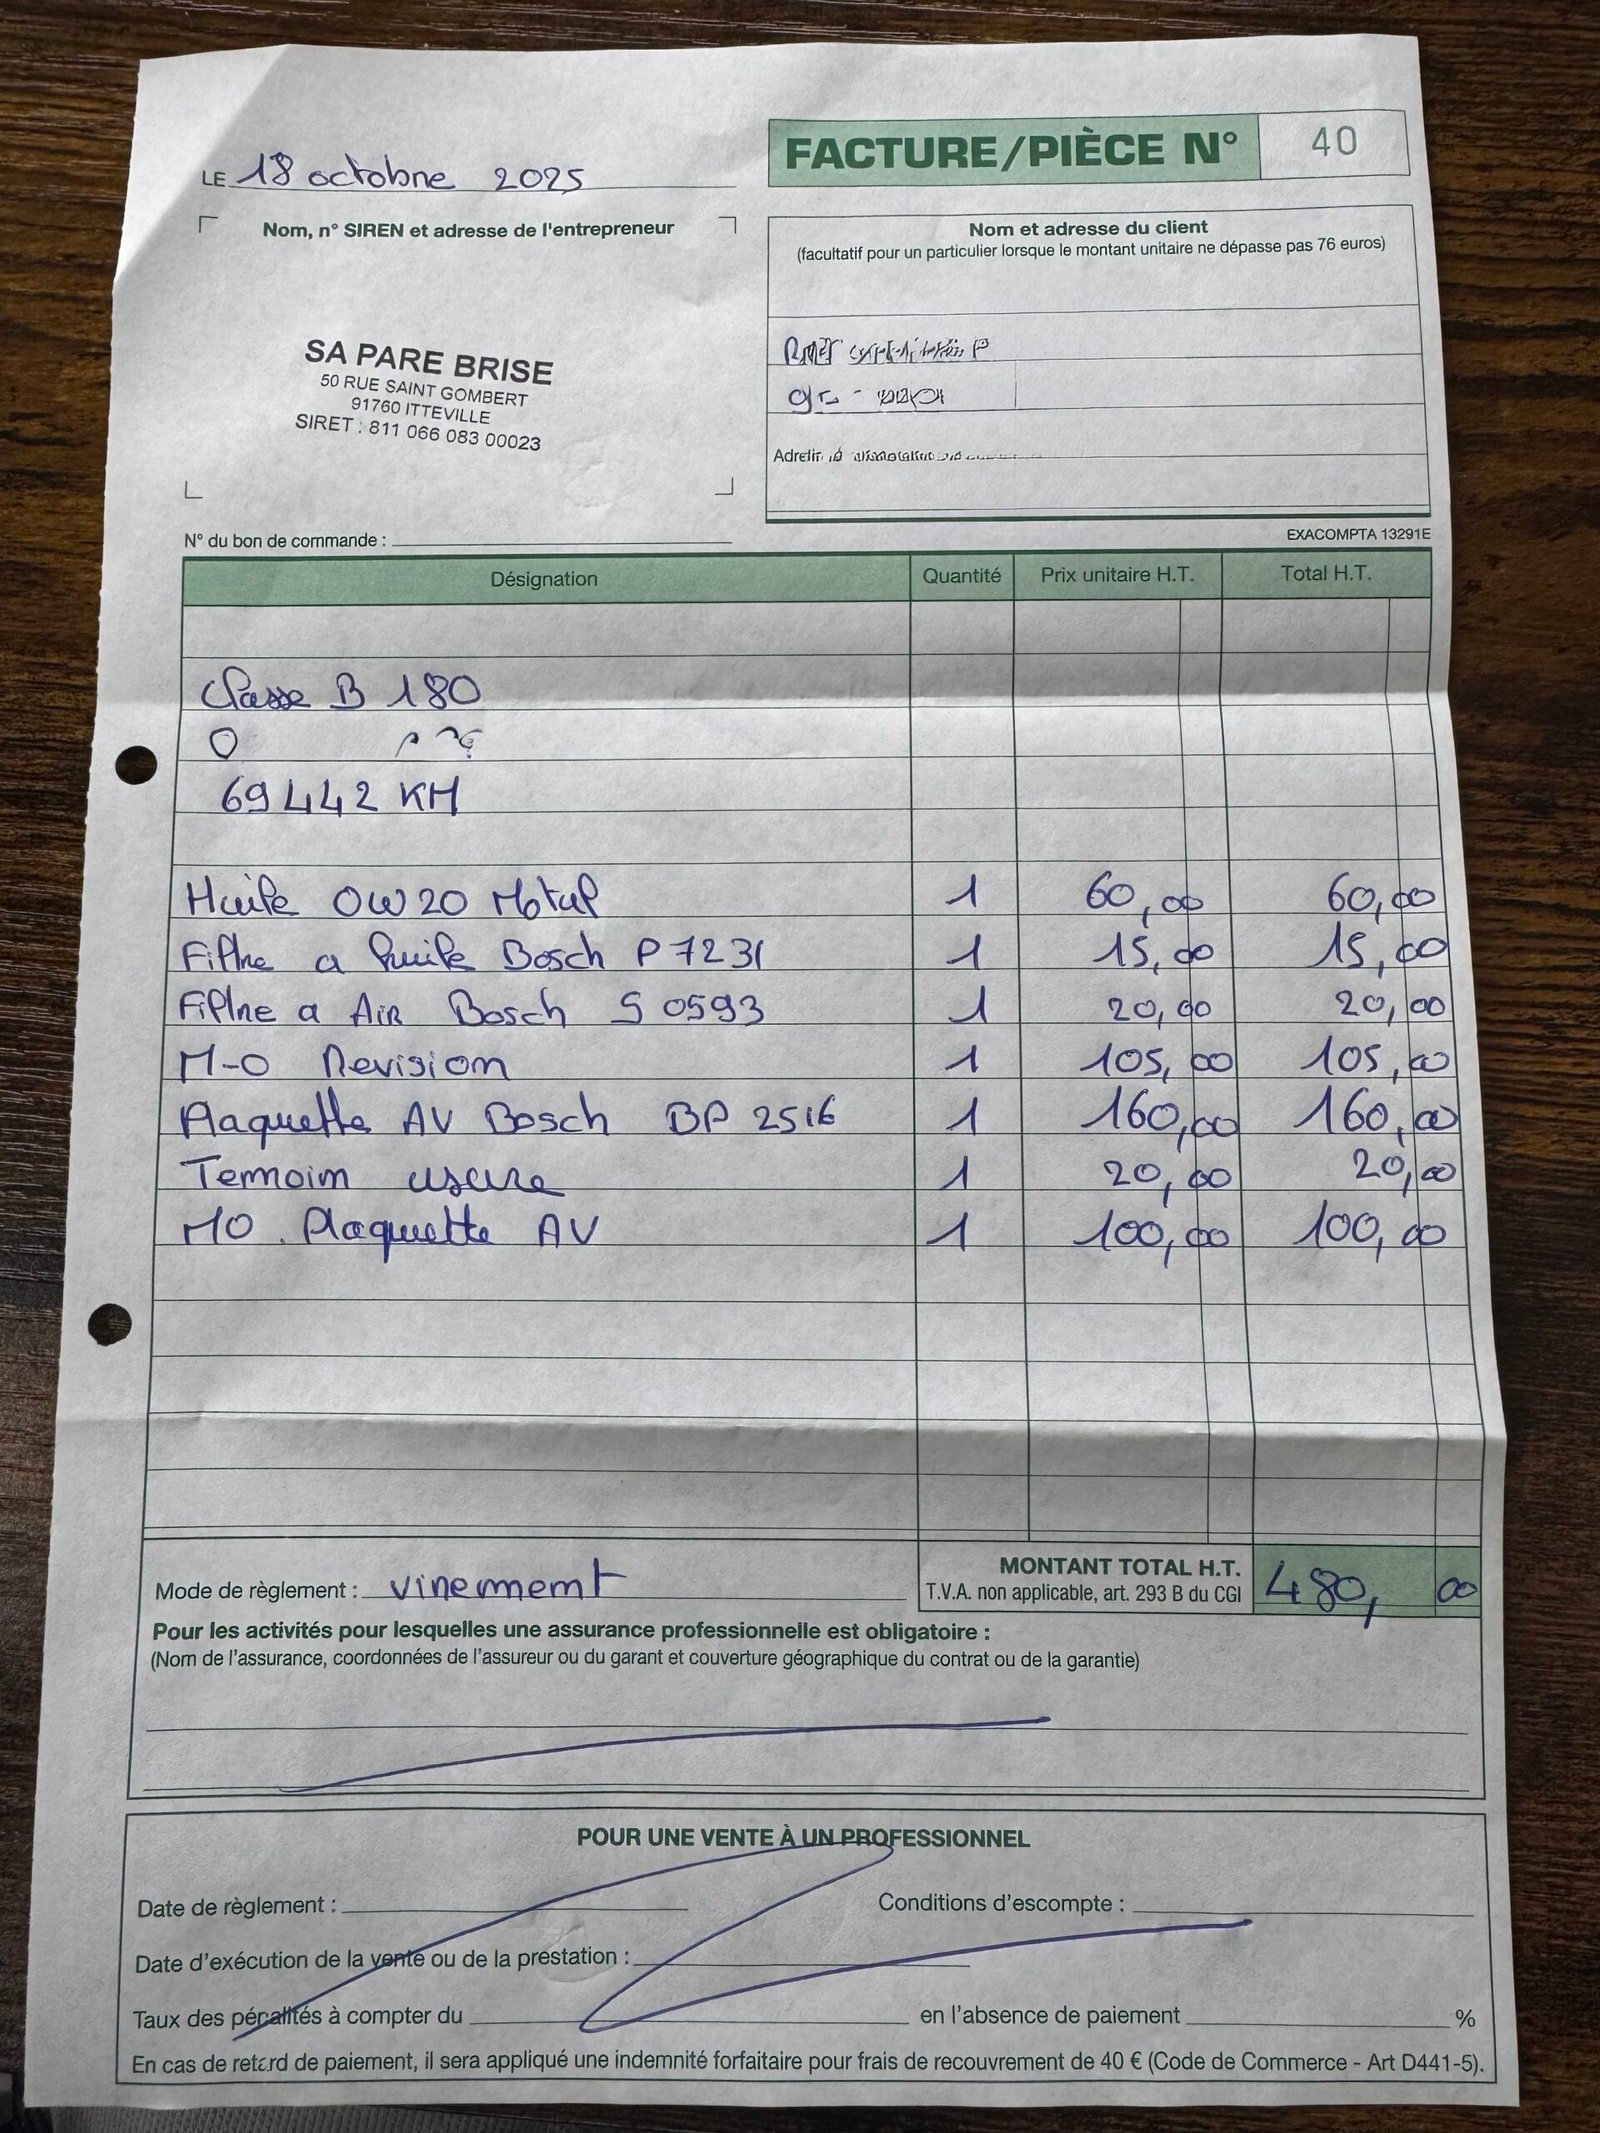 LE 18 octobre 2025
FACTURE/PIÈCE N° 40
Nom, n° SIREN et adresse de l'entrepreneur
SA PARE BRISE
50 RUE SAINT GOMBERT
91760 ITTEVILLE
SIRET : 811 066 083 00023
Nom et adresse du client
(facultatif pour un particulier lorsque le montant unitaire ne dépasse pas 76 euros)
N° du bon de commande :
EXACOMPTA 13291E
Désignation Quantité Prix unitaire H.T. Total H.T.
Classe B 180
69442 KM
Huile 0W20 Motul 1 60,00 60,00
Filtre a huile Bosch P7231 1 15,00 15,00
Filtre a Air Bosch S0593 1 20,00 20,00
M-O Revision 1 105,00 105,00
Plaquette AV Bosch BP 2516 1 160,00 160,00
Temoin usure 1 20,00 20,00
MO. Plaquette AV 1 100,00 100,00
Mode de règlement : virement
MONTANT TOTAL H.T. 480,00
T.V.A. non applicable, art. 293 B du CGI
Pour les activités pour lesquelles une assurance professionnelle est obligatoire :
(Nom de l'assurance, coordonnées de l'assureur ou du garant et couverture géographique du contrat ou de la garantie)
POUR UNE VENTE À UN PROFESSIONNEL
Date de règlement : Conditions d'escompte :
Date d'exécution de la vente ou de la prestation :
Taux des pénalités à compter du en l'absence de paiement %
En cas de retard de paiement, il sera appliqué une indemnité forfaitaire pour frais de recouvrement de 40 € (Code de Commerce - Art D441-5).